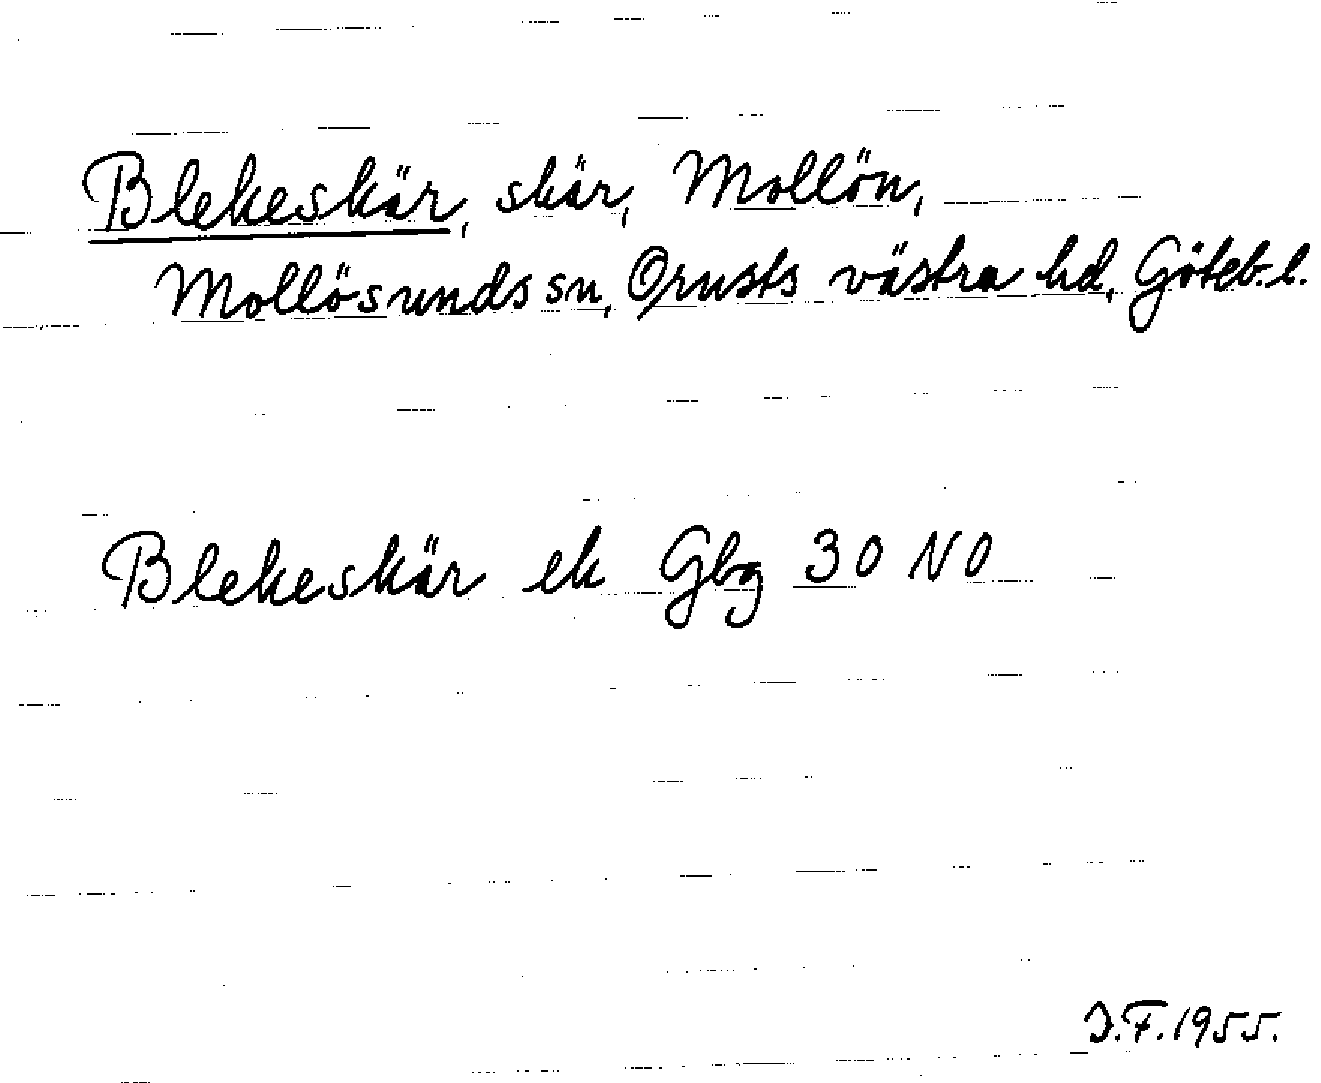 Blekeskär, skär, Mollön,
Mollösunds sn, Orusts västra hd, Göteb. l.
Blekeskär ek Gbg 30 NO
J.F. 1955.